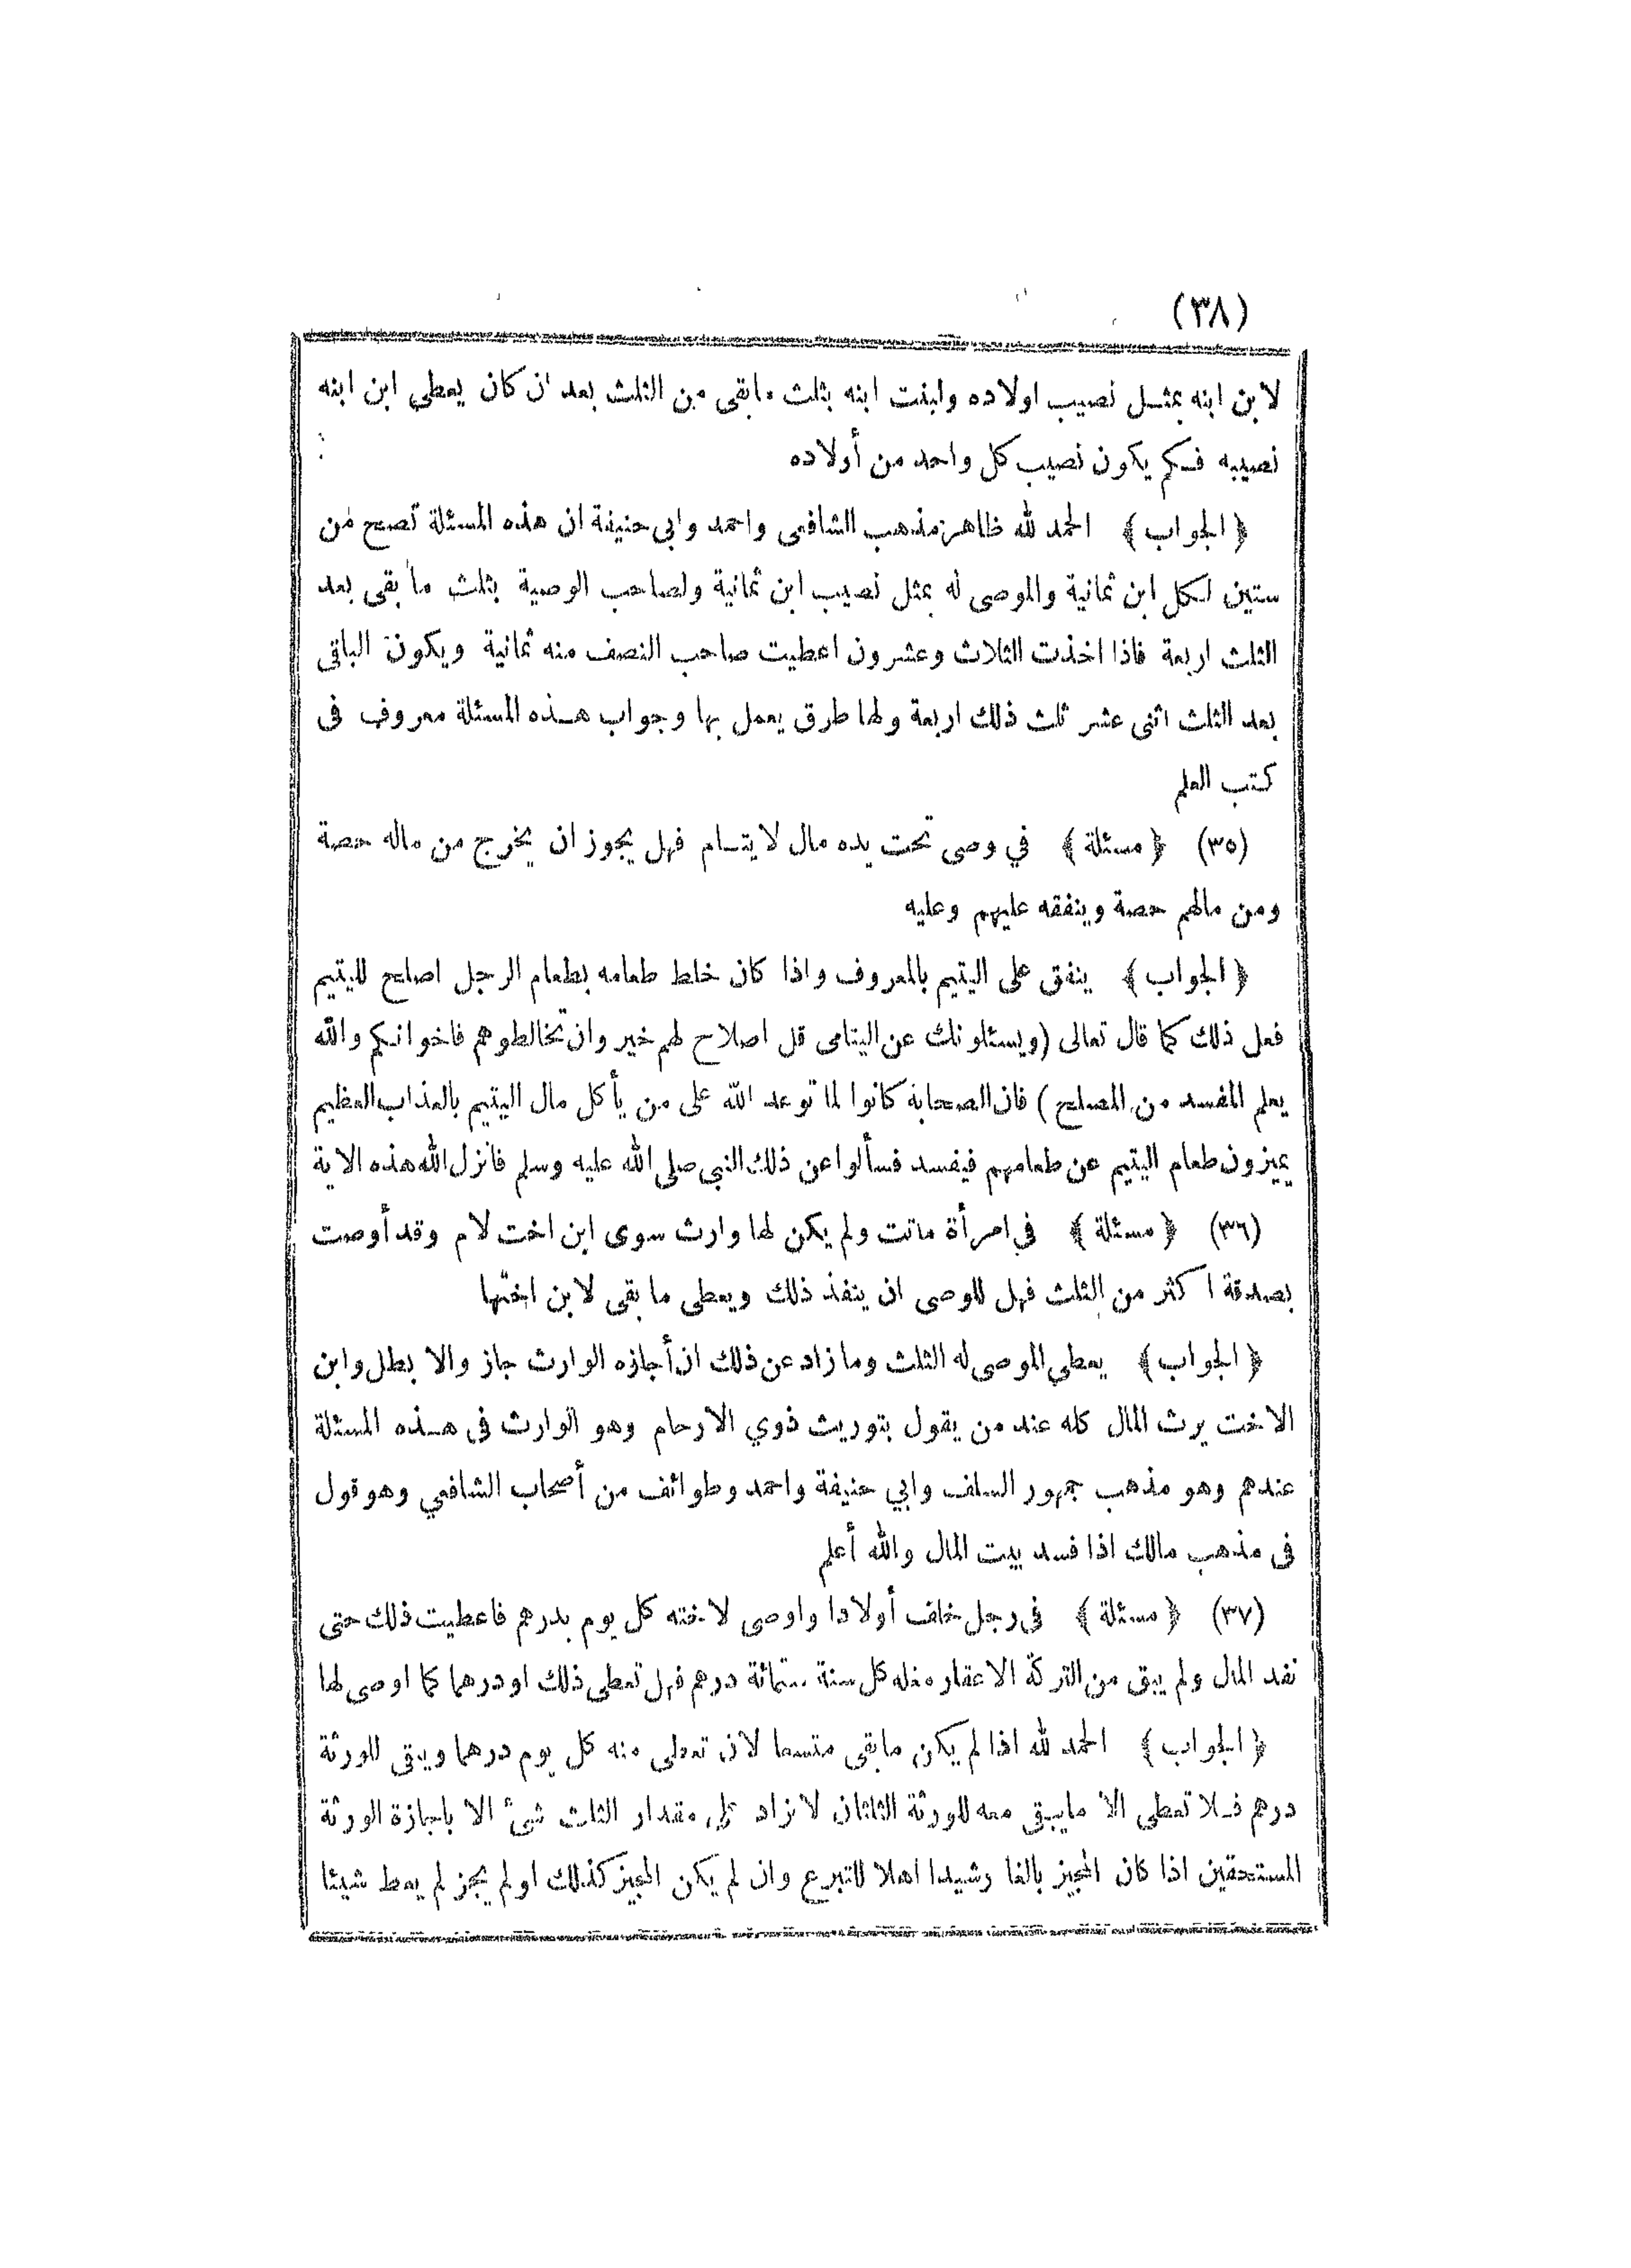 (٣٨)
لابن ابنه بمثل نصيب اولاده ولبنت ابنه بثلث مابقى من الثلث بعد ان كان يعطي ابن ابنه
نصيبه فكم يكون نصيب كل واحد من أولاده
﴿ الجواب ﴾ الحمد لله ظاهر مذهب الشافعى واحمد وابى حنيفة ان هذه المسئلة تصح من
ستين لكل ابن ثمانية وللموصى له بمثل نصيب ابن ثمانية ولصاحب الوصية بثلث ما بقى بعد
الثلث اربعة فاذا اخذت الثلاث وعشرون اعطيت صاحب النصف منه ثمانية ويكون الباقى
بعد الثلث اثنى عشر ثلث ذلك اربعة ولها طرق يعمل بها وجواب هذه المسئلة معروف فى
كتب العلم
(٣٥) ﴿ مسئلة ﴾ في وصى تحت يده مال لايتام فهل يجوز ان يخرج من ماله حصة
ومن مالهم حصة وينفقه عليهم وعليه
﴿ الجواب ﴾ ينفق على اليتيم بالمعروف واذا كان خلط طعامه بطعام الرجل اصلح لليتيم
فعل ذلك كما قال تعالى (ويسئلونك عن اليتامى قل اصلاح لهم خير وان تخالطوهم فاخوانكم والله
يعلم المفسد من المصلح) فان الصحابة كانوا لما توعد الله على من يأكل مال اليتيم بالعذاب العظيم
يميزون طعام اليتيم عن طعامهم فيفسد فسألوا عن ذلك النبي صلى الله عليه وسلم فانزل الله هذه الاية
(٣٦) ﴿ مسئلة ﴾ في امرأة ماتت ولم يكن لها وارث سوى ابن اخت لام وقد أوصت
بصدقة اكثر من الثلث فهل للوصى ان ينفذ ذلك ويعطى ما بقى لابن اختها
﴿ الجواب ﴾ يعطي الموصى له الثلث وما زاد عن ذلك ان أجازه الوارث جاز والا بطل وابن
الاخت يرث المال كله عند من يقول بتوريث ذوي الارحام وهو الوارث فى هذه المسئلة
عندهم وهو مذهب جمهور السلف وابي حنيفة واحمد وطوائف من أصحاب الشافعي وهو قول
فى مذهب مالك اذا فسد بيت المال والله أعلم
(٣٧) ﴿ مسئلة ﴾ فى رجل خلف أولادا واوصى لاخته كل يوم بدرهم فاعطيت ذلك حتى
نفد المال ولم يبق من التركة الا عقار مغله كل سنة ستمائة درهم فهل تعطى ذلك او درهما كما اوصى لها
﴿ الجواب ﴾ الحمد لله اذا لم يكن مابقى متسعا لان تعطى منه كل يوم درهما ويبقى للورثة
درهم فلا تعطى الا مايبقى معه للورثة الثلثان لا يزاد على مقدار الثلث شئ الا باجازة الورثة
المستحقين اذا كان المجيز بالغا رشيدا اهلا للتبرع وان لم يكن المجيز كذلك او لم يجز لم يعط شيئا